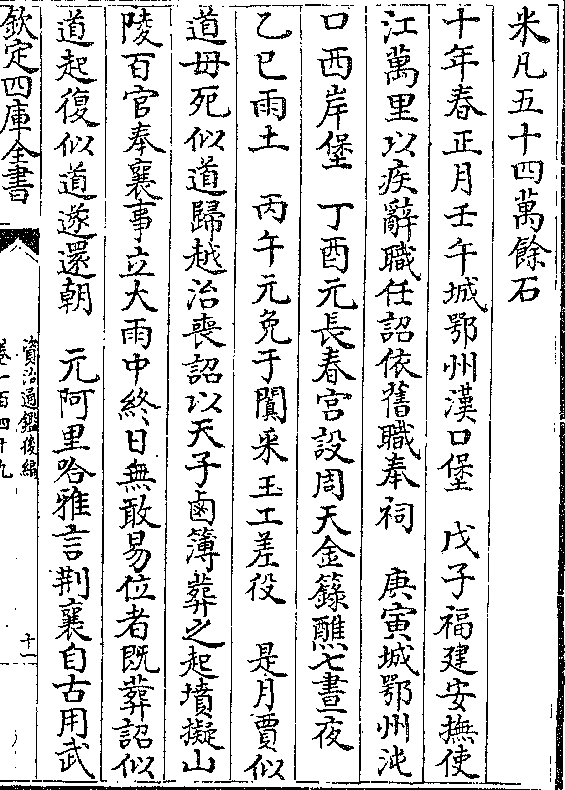 米凡五十四萬餘石
十年春正月壬午城鄂州漢口堡　戊子福建安撫使
江萬里以疾辭職任詔依舊職奉祠　庚寅城鄂州沌
口西岸堡　丁酉元長春宮設周天金籙醮七晝夜
乙巳雨土　丙午元免于闐采玉工差役　是月賈似
道母死似道歸越治喪詔以天子鹵簿葬之起墳擬山
陵百官奉襄事立大雨中終日無敢易位者既葬詔似
道起復似道遂還朝　元阿里哈雅言荆襄自古用武
欽定四庫全書
資治通鑑後編
卷一百四十九
十一